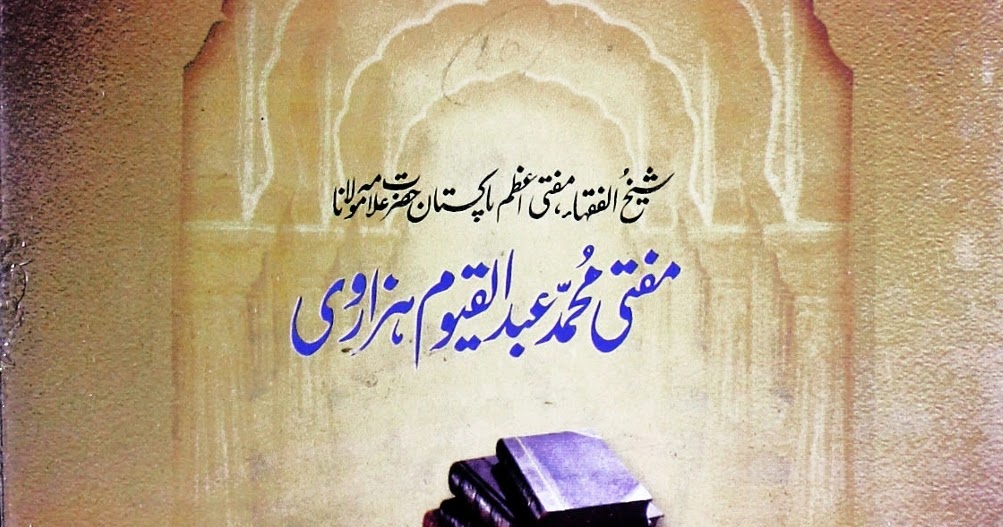 شیخُ الفقہاء، مفتی اعظم پاکستان حضرت علامہ مولانا
مفتی مُحمّد عبد القیوم ہزاروی